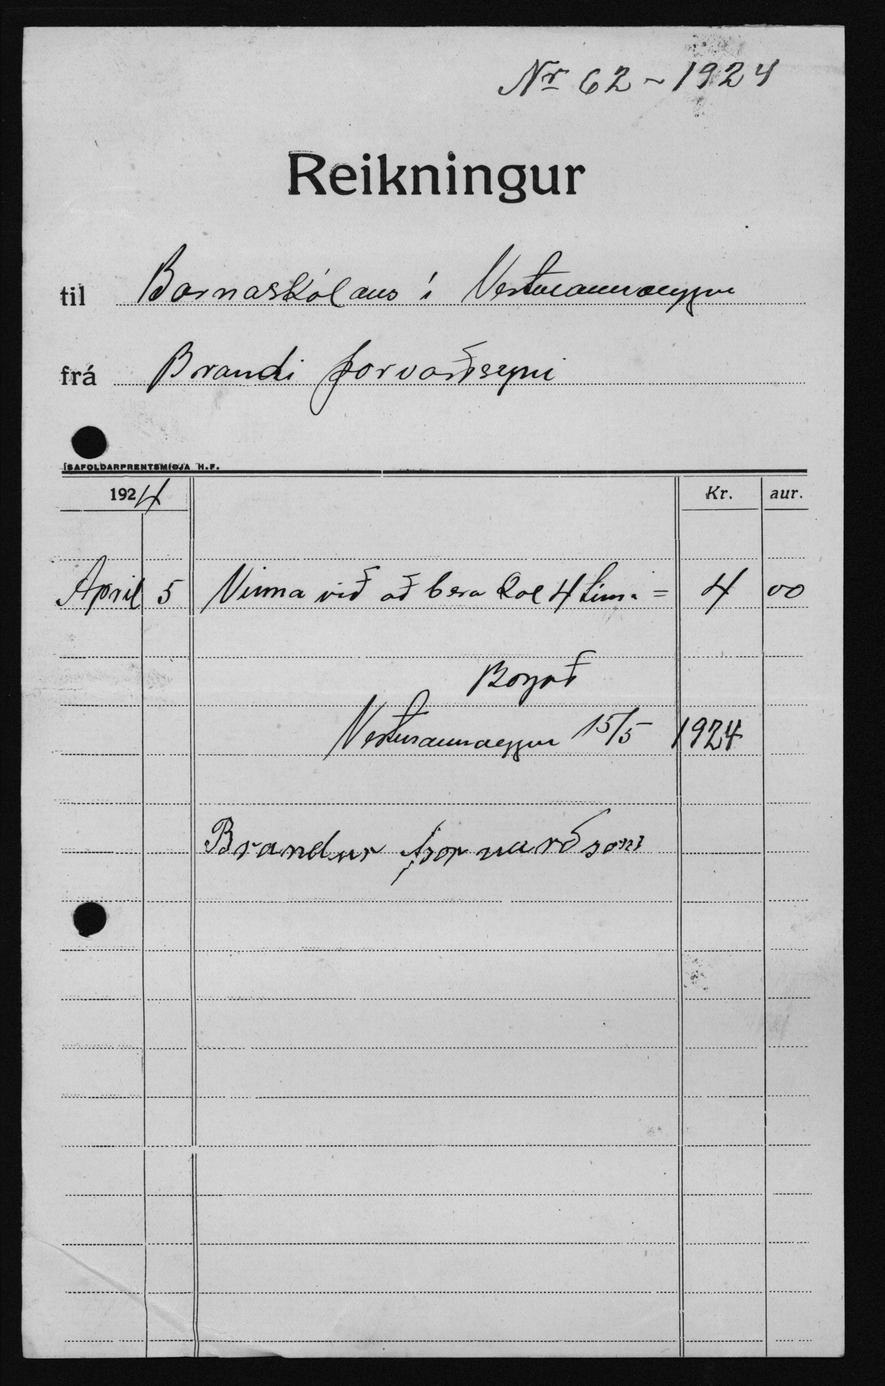 Nr 62 ~ 1924
Reikningur
til Barnaskólans í Vestmannaeyjum
frá Brandi Þorvarðssyni
ÍSAFOLDARPRENTSMIÐJA H.F.
1924 Kr. aur.
April 5 Vinna við að bera kol 4 tíma = 4 00
Borgað
Vestmannaeyjum 15/5 1924
Brandur Þorvarðsson